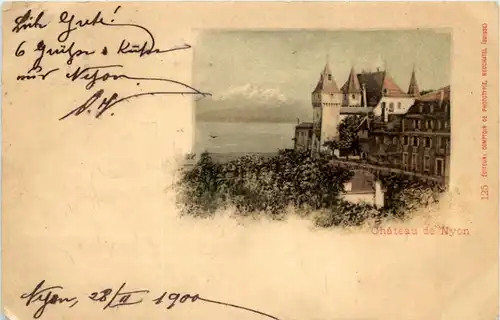 Liebe Grete!
6 Grüsse & Küsse
Nyon
Château de Nyon
125 ÉDITEURS, COMPTOIR DE PHOTOTYPIE, NEUCHATEL (SUISSE)
Nyon, 28/II 1900